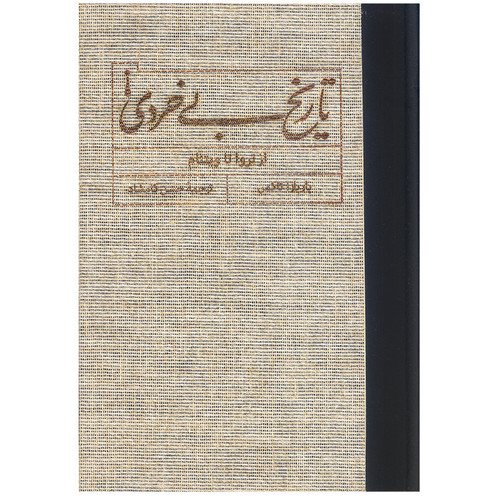 تاریخ بی‌خردی
از تروا تا ویتنام
باربارا تاکمن
ترجمه حسن کامشاد